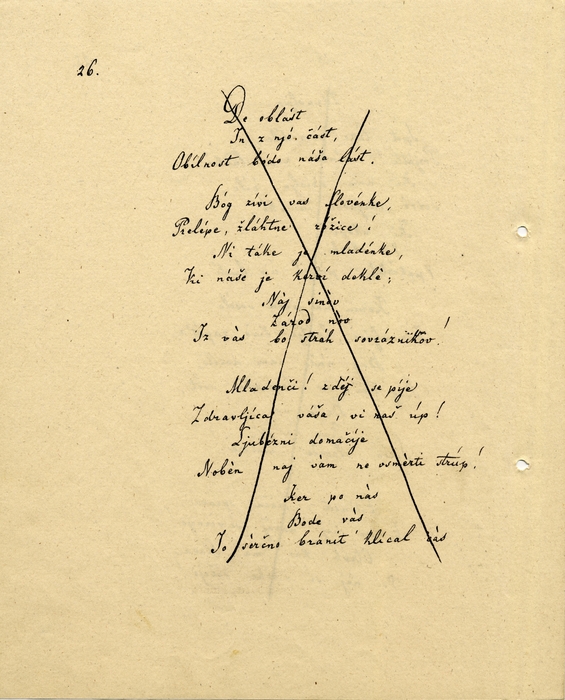 26.
De oblást
In z njó. část,
Obilnost bódo náša lást.
Bóg živi vas Slovénke,
Prelépe, žláhtne rôžice!
Ni táke je mladénke,
Ki náše je kerví deklè;
Náj sinóv
Zárod nòv
Iz vàs bo stráh sovrážnikov!
Mladenči! zděj se píje
Zdravljica váša, vi naš úp!
Ljubézni domačíje
Nobèn naj vàm ne vsmèrti strúp!
Ker po nàs
Bode vàs
Jo sèrčno bránit' klícal čàs